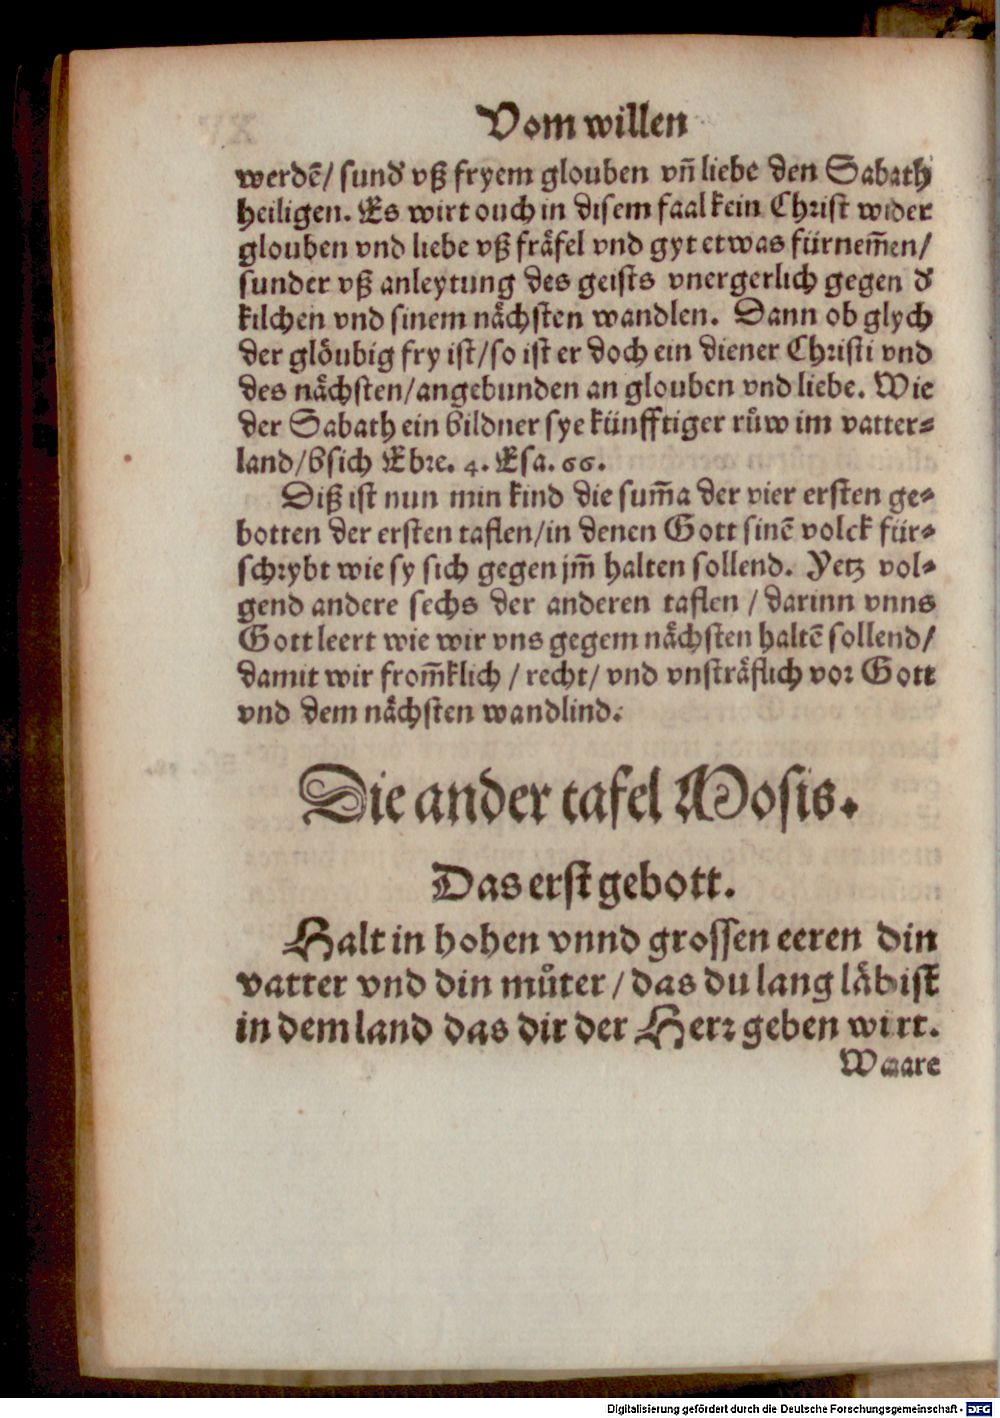 Vom willen
werdē/ sund' vß fryem glouben vn̄ liebe den Sabath
heiligen. Es wirt ouch in disem faal kein Christ wider
glouben vnd liebe vß fräfel vnd gyt etwas fürnem̄en/
sunder vß anleytung des geists vnergerlich gegen d'
kilchen vnd sinem nächsten wandlen. Dann ob glych
der glöubig fry ist/so ist er doch ein diener Christi vnd
des nächsten/angebunden an glouben vnd liebe. Wie
der Sabath ein bildner sye künfftiger růw im vatter-
land/bsich Ebre. 4. Esa. 66.
Diß ist nun min kind die sum̄a der vier ersten ge-
botten der ersten taflen/in denen Gott sinē volck für-
schrybt wie sy sich gegen jm̄ halten sollend. Yetz vol-
gend andere sechs der anderen taflen / darinn vnns
Gott leert wie wir vns gegem nächsten haltē sollend/
damit wir from̄klich / recht/ vnd vnsträflich vor Gott
vnd dem nächsten wandlind.
Die ander tafel Mosis.
Das erst gebott.
Halt in hohen vnnd grossen eeren din
vatter vnd din můter / das du lang läbist
in dem land das dir der Herr geben wirt.
Waare
Digitalisierung gefördert durch die Deutsche Forschungsgemeinschaft - DFG